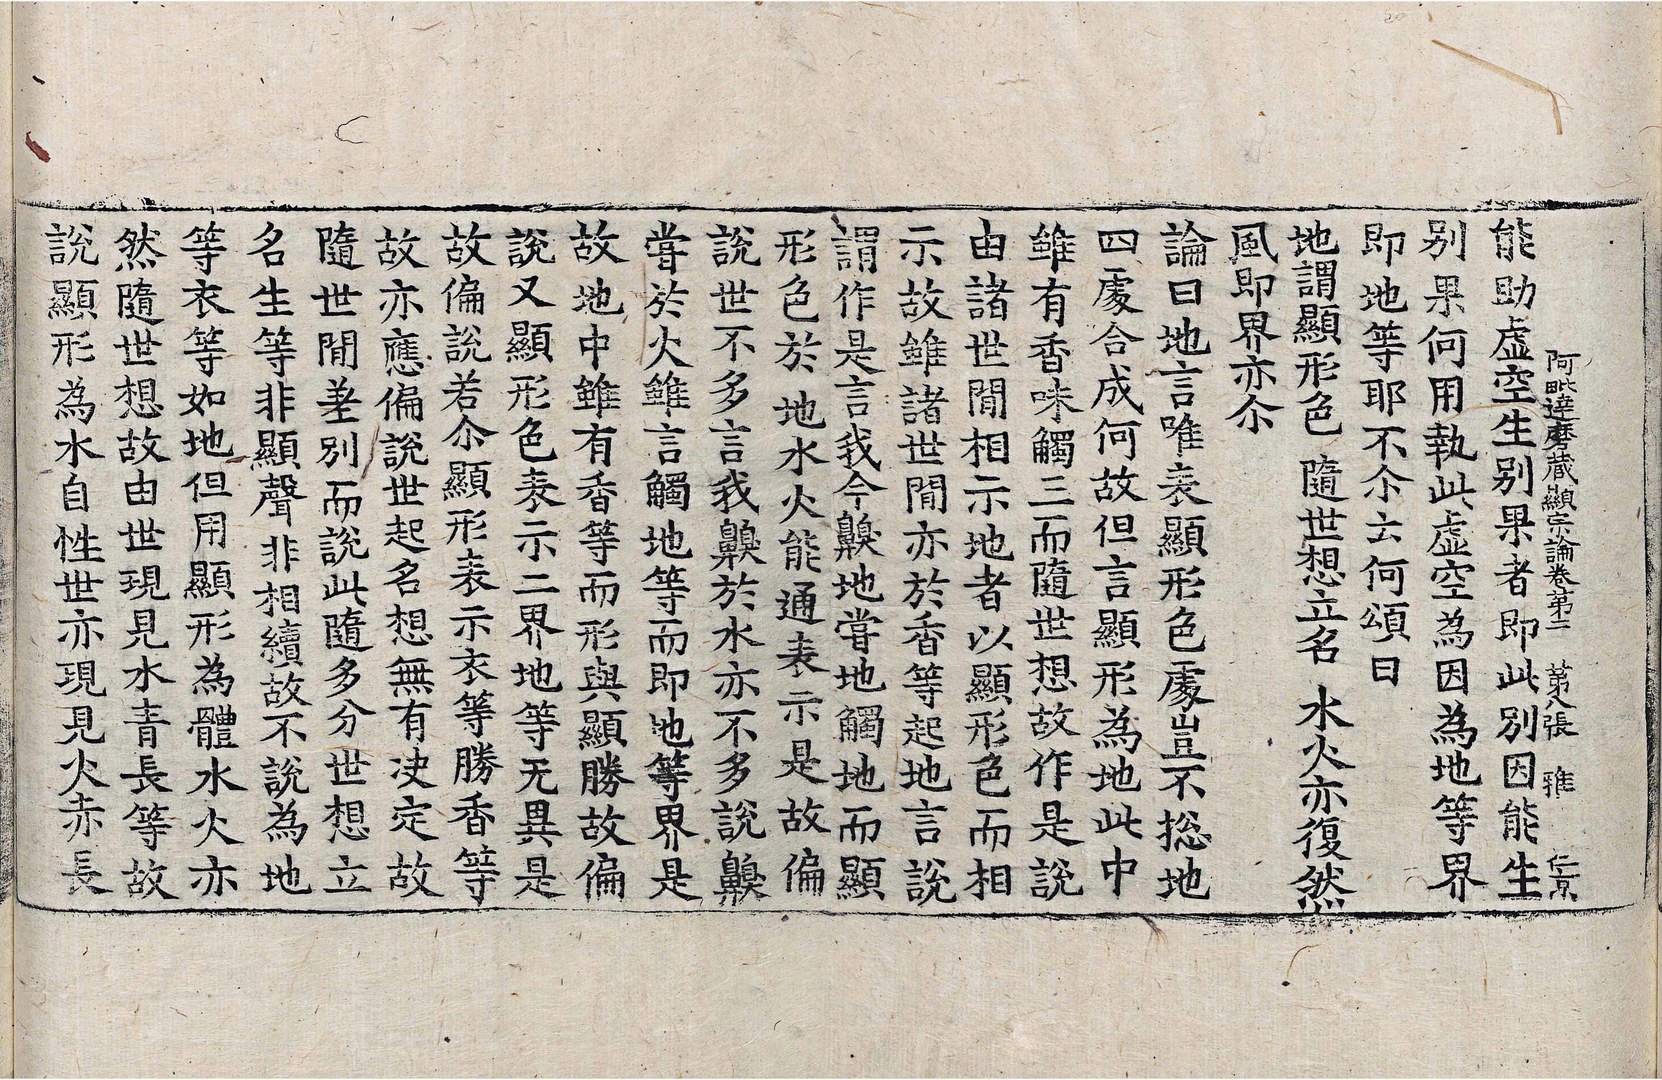 阿毗達磨藏顯宗論卷第二 第八張 雅 仁京
能助虛空生别果者即此别因能生
别果何用執此虛空為因為地等界
即地等耶不尒云何頌曰
地謂顯形色 隨世想立名 水火亦復然
風即界亦尒
論曰地言唯表顯形色處豈不揔地
四處合成何故但言顯形為地此中
雖有香味觸三而隨世想故作是說
由諸世閒相示地者以顯形色而相
示故雖諸世閒亦於香等起地言說
謂作是言我今齅地嘗地觸地而顯
形色於地水火能通表示是故偏
說世不多言我齅於水亦不多說齅
嘗於火雖言觸地等而即地等界是
故地中雖有香等而形與顯勝故偏
說又顯形色表示二界地等无異是
故偏說若尒顯形表示衣等勝香等
故亦應偏說世起名想無有决定故
隨世閒差別而說此隨多分世想立
名生等非顯聲非相續故不說為地
等衣等如地但用顯形為體水火亦
然隨世想故由世現見水青長等故
說顯形為水自性世亦現見火赤長